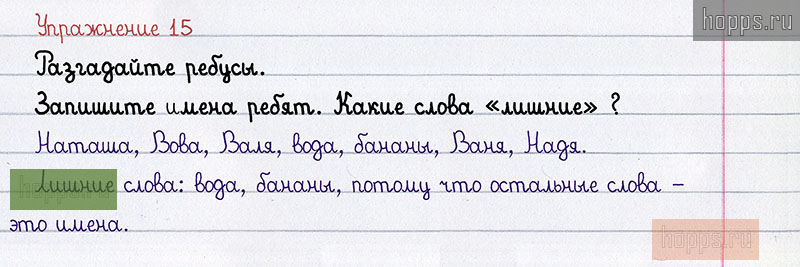 hopps.ru
Упражнение 15
Разгадайте ребусы.
Запишите имена ребят. Какие слова «лишние» ?
Наташа, Вова, Валя, вода, бананы, Ваня, Надя.
Лишние слова: вода, бананы, потому что остальные слова –
это имена.
hopps.ru